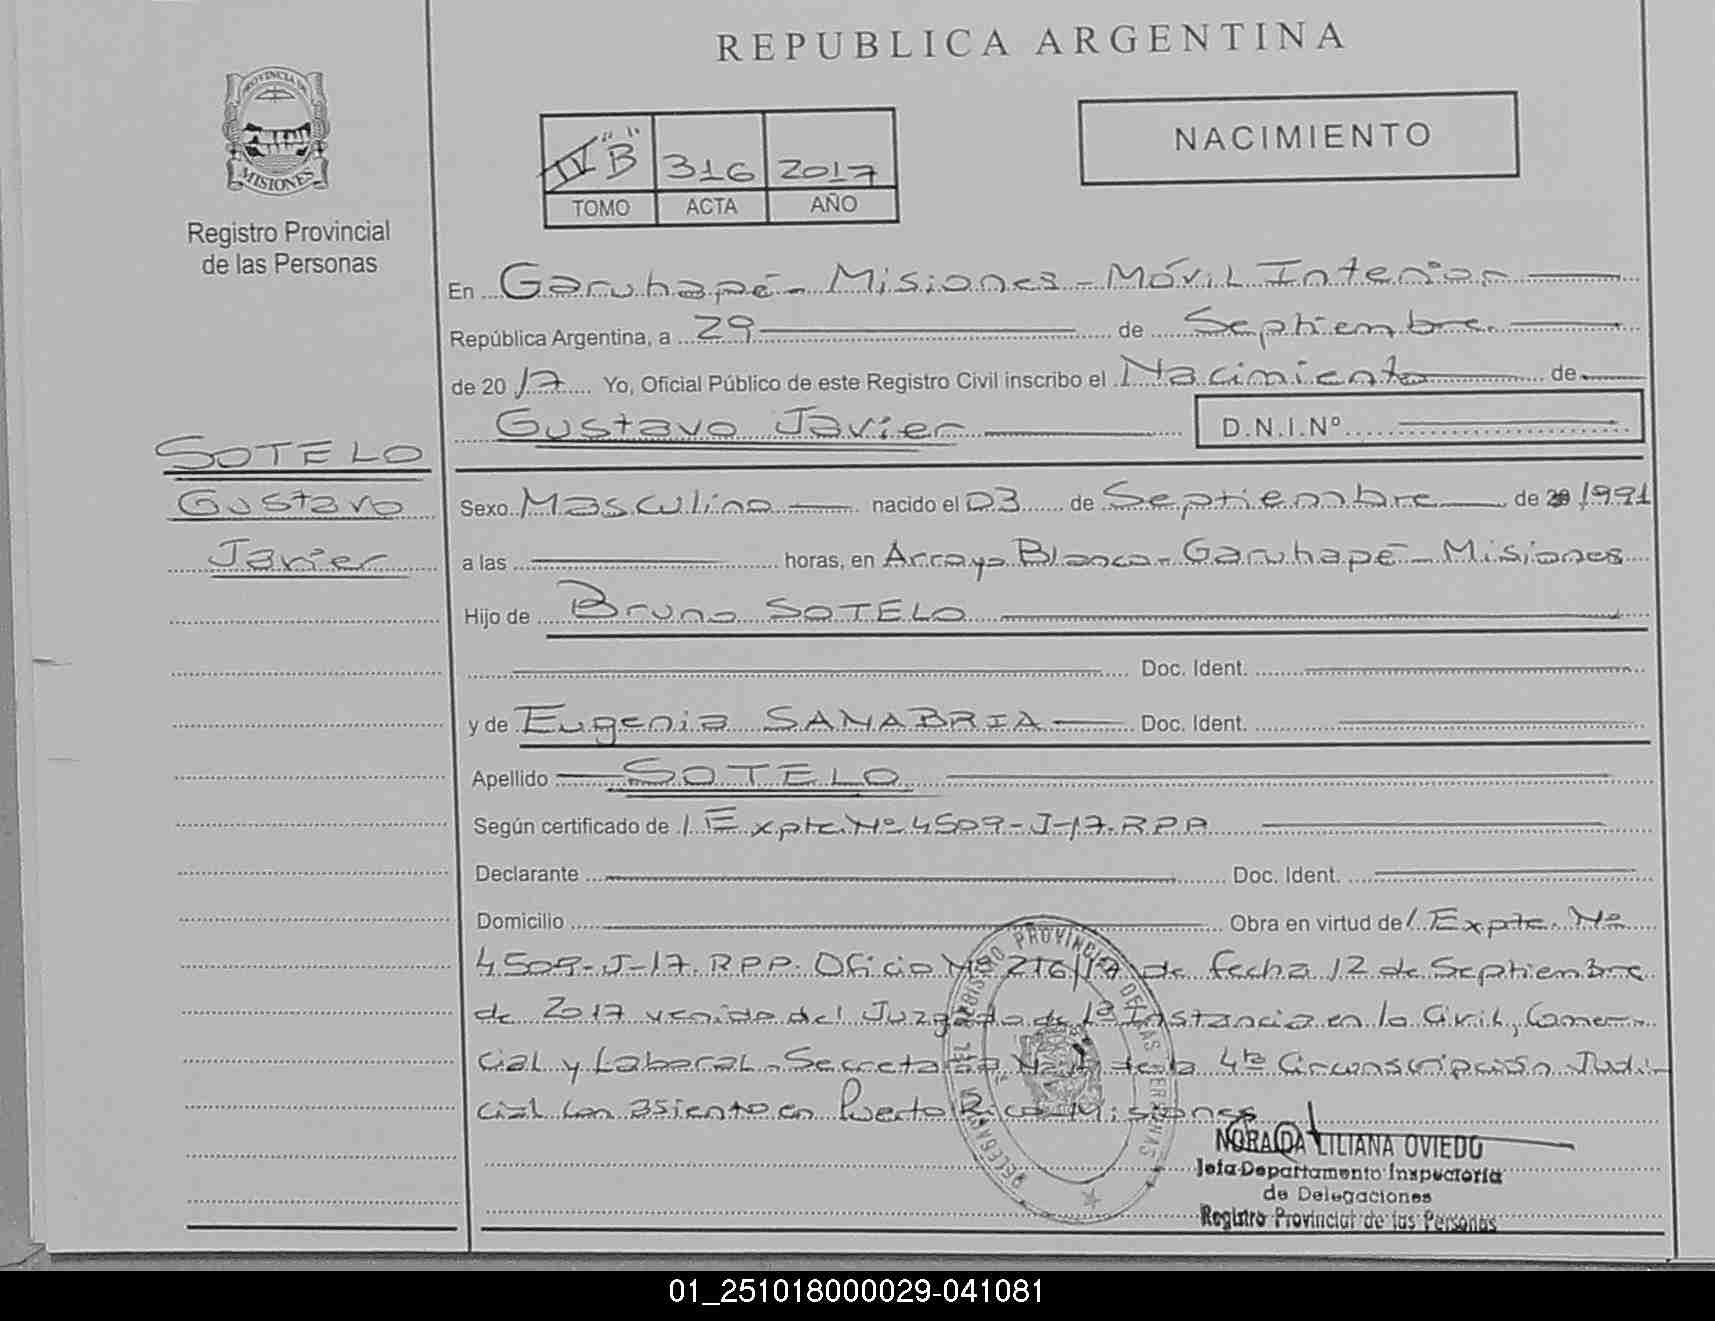 REPUBLICA ARGENTINA
PROVINCIA DE
MISIONES
Registro Provincial
de las Personas
IV "B" 316 2017
TOMO ACTA AÑO
NACIMIENTO
En Garuhapé - Misiones - Móvil Interior
República Argentina, a 29 de Septiembre
de 2017 Yo, Oficial Público de este Registro Civil inscribo el Nacimiento de
Gustavo Javier D.N.I.Nº
SOTELO
Gustavo
Javier
Sexo Masculino nacido el 03 de Septiembre de 1991
a las horas, en Arroyo Blanco - Garuhapé - Misiones
Hijo de Bruno SOTELO
Doc. Ident.
y de Eugenia SANABRIA Doc. Ident.
Apellido SOTELO
Según certificado de /. Expte. Nº 4509-J-17. R.P.P.
Declarante Doc. Ident.
Domicilio Obra en virtud de /. Expte. Nº
4509-J-17. R.P.P. Oficio Nº 216/17 de fecha 12 de Septiembre
de 2017 venido del Juzgado de 1ª Instancia en lo Civil, Comer-
cial y Laboral - Secretaría Nº de la 4ta Circunscripción Judi-
cial con asiento en Puerto Rico - Misiones
DELEGACION DEL REGISTRO PROVINCIAL DE LAS PERSONAS
NORA LILIANA OVIEDO
Jefa Departamento Inspectoría
de Delegaciones
Registro Provincial de las Personas
01_251018000029-041081